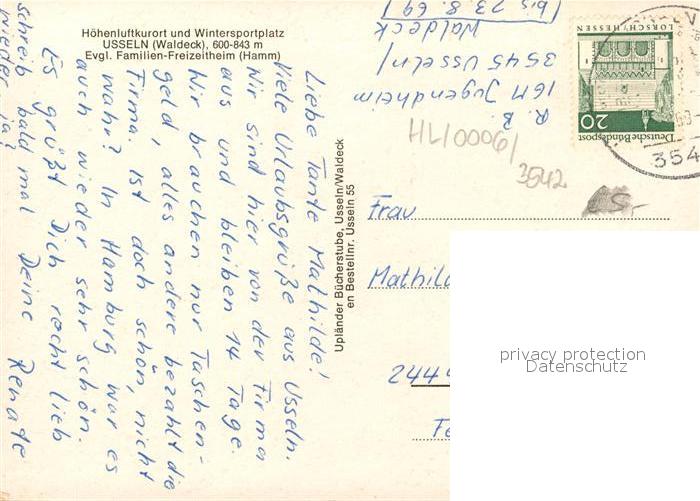 Höhenluftkurort und Wintersportplatz
USSELN (Waldeck), 600-843 m
Evgl. Familien-Freizeitheim (Hamm)
Liebe Tante Mathilde!
Viele Urlaubsgrüße aus Usseln.
Wir sind hier von der Firma
aus und bleiben 14 Tage.
Wir brauchen nur Taschen-
geld, alles andere bezahlt die
Firma. Ist doch schön, nicht
wahr? In Hamburg war es
auch wieder sehr schön.
Es grüßt Dich recht lieb
Deine Renate
schreib bald mal
wieder, ja?
Upländer Bücherstube, Usseln/Waldeck
en Bestellnr. Usseln 55
R. B.
IGM Jugendheim
3545 Usseln/
Waldeck
(bis 23.8.69)
LORSCH/HESSEN
20
Deutsche Bundespost
354
HL/00061
3542
Frau
Mathild
244
Fe
privacy protection
Datenschutz